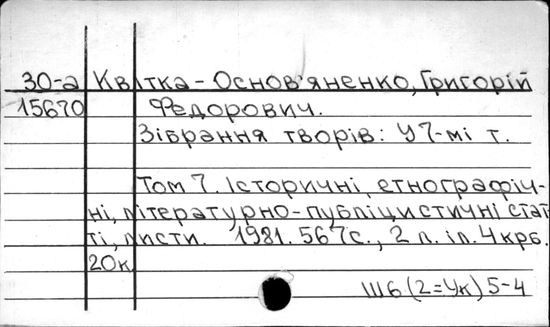 30-а Квітка-Основ'яненко, Григорій
15670 Федорович.
Зібрання творів: У 7-мі т.
Том 7. Історичні, етнографіч-
ні, літературно-публіцистичні стат
ті, листи. 1981. 567с., 2 л. іл. 4 крб.
20к
Ш6(2=Ук)5-4